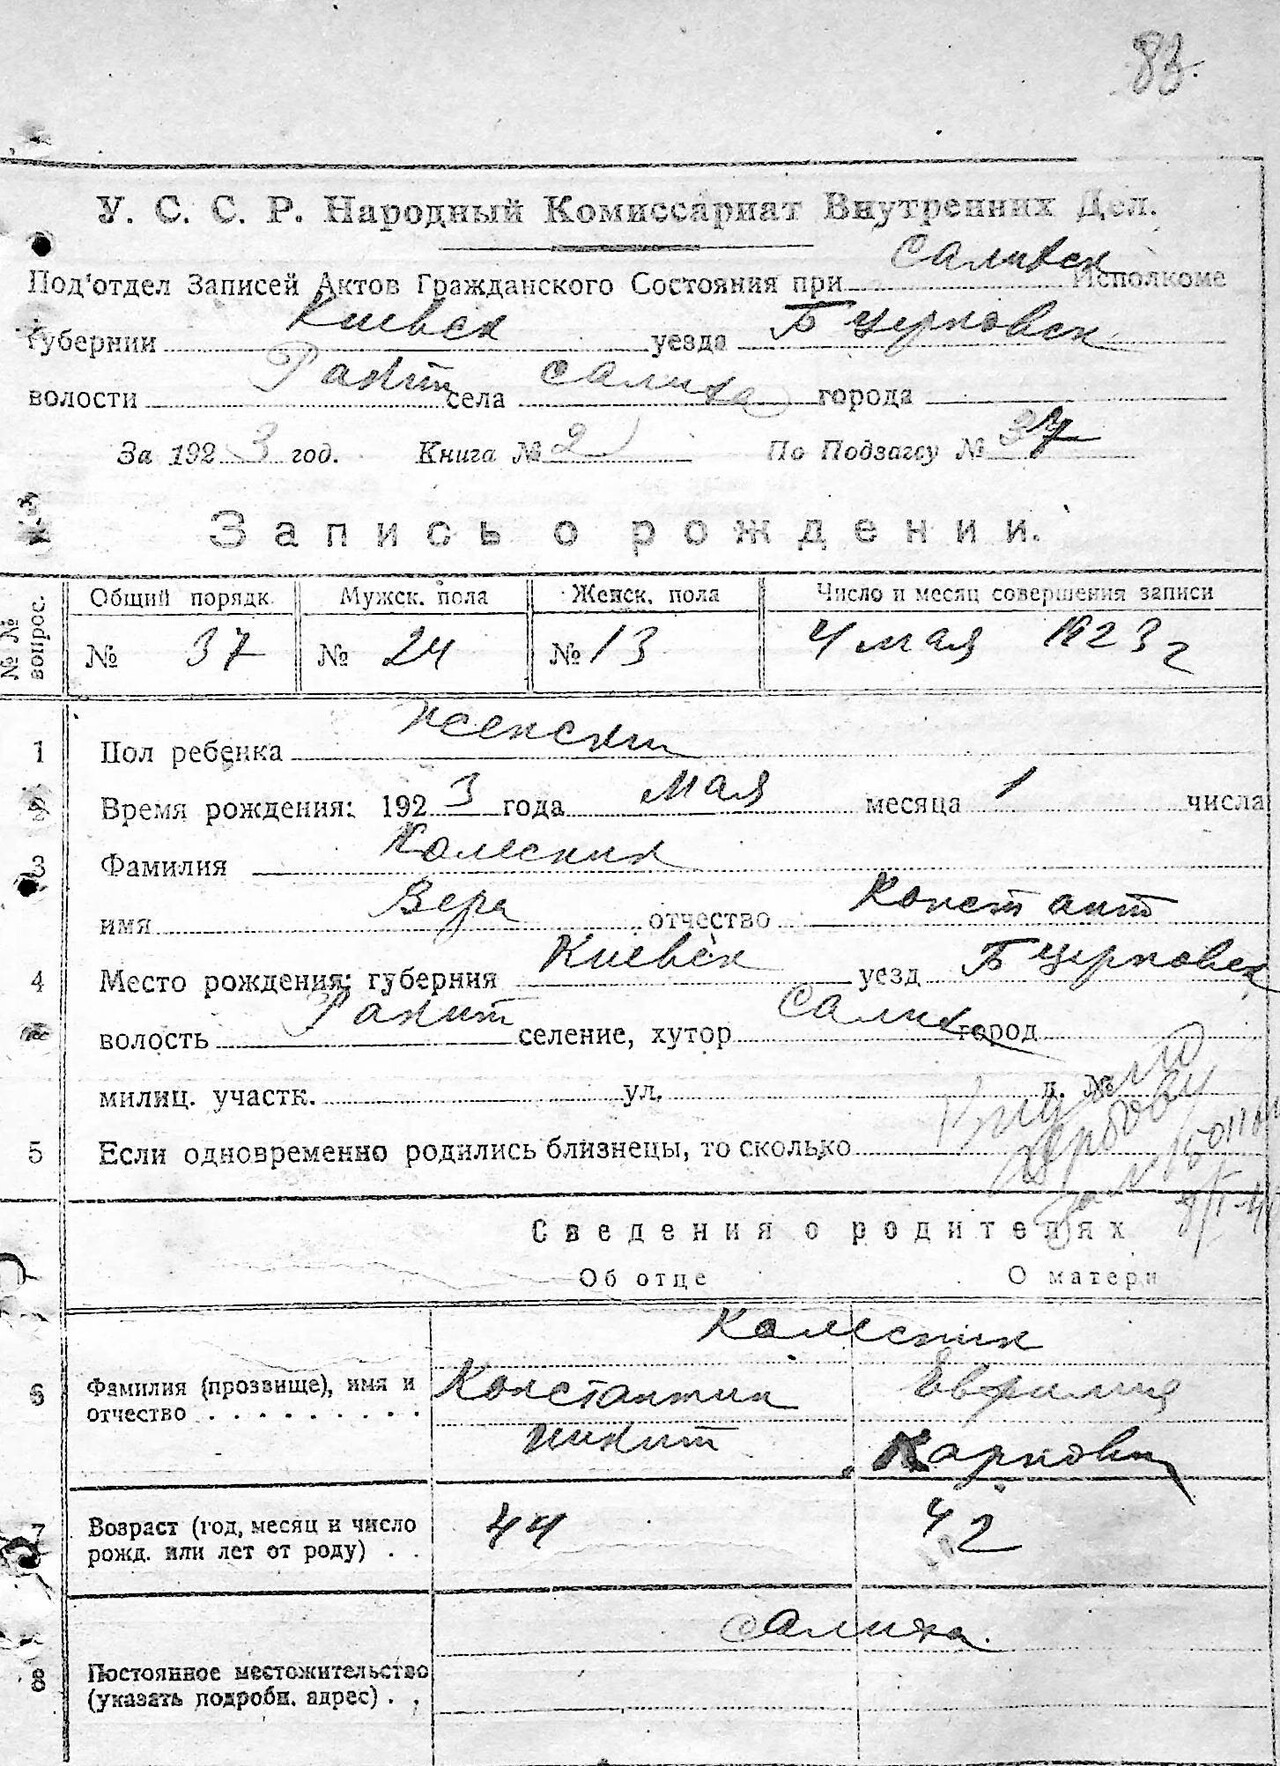 83.
У. С. С. Р. Народный Комиссариат Внутренних Дел.
Под'отдел Записей Актов Гражданского Состояния при Саливск Исполкоме
Губернии Киевск уезда Б Церковск
волости Ракит села Салиха города
За 1923 год. Книга № 2 По Подзагсу № 37
Запись о рождении.
№№ вопрос. Общий порядк. Мужск. пола Женск. пола Число и месяц совершения записи
№ 37 № 24 № 13 4 мая 1923 г
1 Пол ребенка женский
2 Время рождения: 1923 года мая месяца 1 числа
3 Фамилия Колесник
имя Вера отчество Констант
4 Место рождения: губерния Киевск уезд Б Церковск
волость Ракит селение, хутор Салиха город
милиц. участк. ул. д. №
5 Если одновременно родились близнецы, то сколько
Сведения о родителях
Об отце О матери
Колесник
6 Фамилия (прозвище), имя и Константин
отчество Никит Карповн
7 Возраст (год, месяц и число 44 42
рожд. или лет от роду)
Салиха.
8 Постоянное местожительство
(указать подробн. адрес)